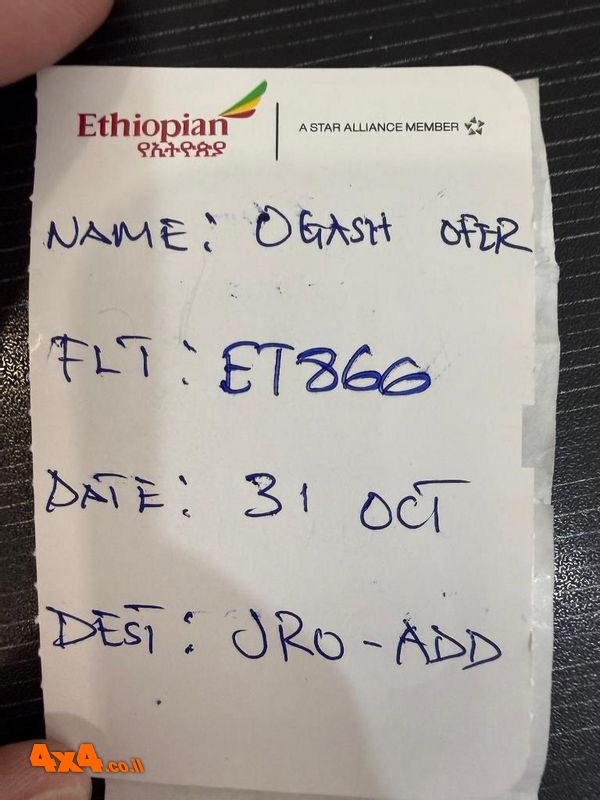 Ethiopian
የኢትዮጵያ
A STAR ALLIANCE MEMBER
NAME: OGASH OFER
FLT: ET866
DATE: 31 OCT
DEST: JRO-ADD
4x4.co.il